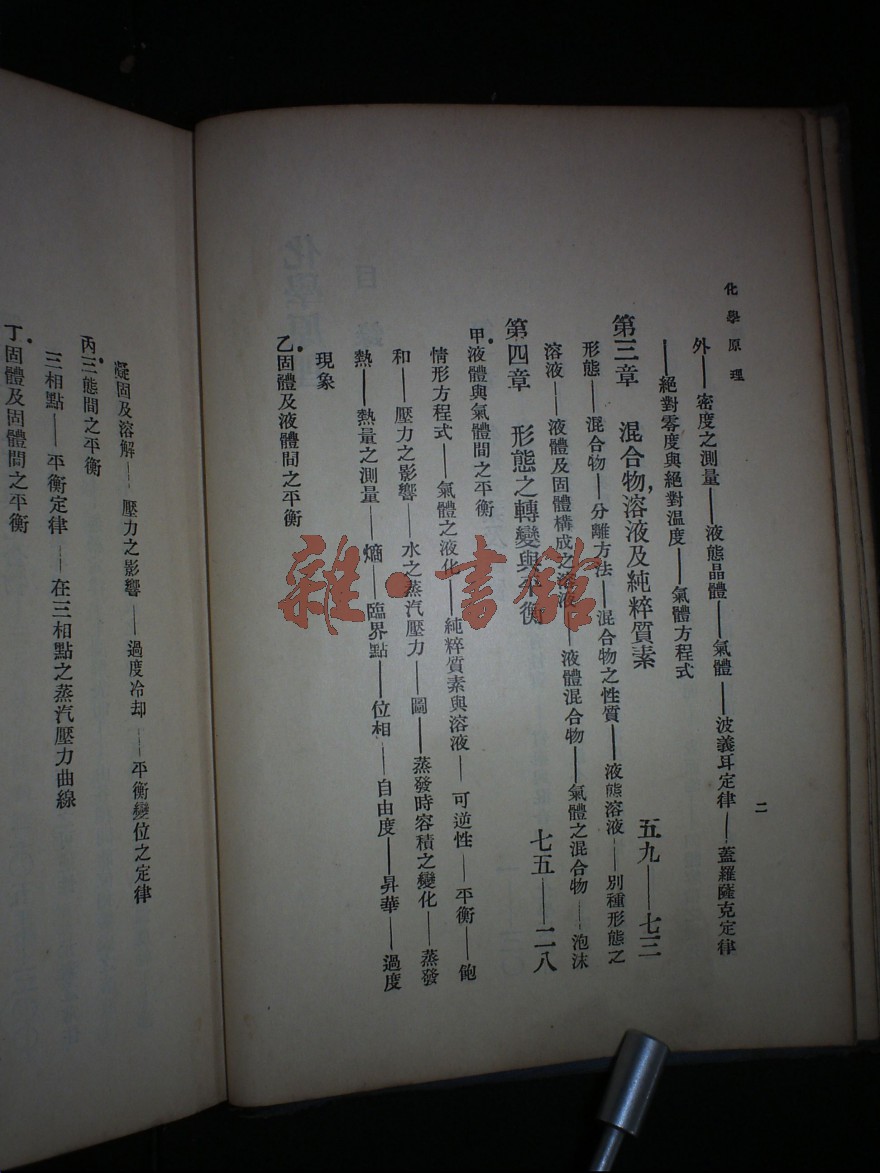 化學原理
二
外——密度之測量——液態晶體——氣體——波義耳定律——蓋羅薩克定律
——絕對零度與絕對温度——氣體方程式
第三章　混合物,溶液及純粹質素　五九——七三
形態——混合物——分離方法——混合物之性質——液態溶液——別種形態之
溶液——液體及固體構成之溶液——液體混合物——氣體之混合物——泡沫
第四章　形態之轉變與平衡　七五——二八
甲.液體與氣體間之平衡
情形方程式——氣體之液化——純粹質素與溶液——可逆性——平衡——飽
和——壓力之影響——水之蒸汽壓力——圖——蒸發時容積之變化——蒸發
熱——熱量之測量——熵——臨界點——位相——自由度——昇華——過度
現象
乙.固體及液體間之平衡
凝固及溶解——壓力之影響——過度冷却——平衡變位之定律
丙.三態間之平衡
三相點——平衡定律——在三相點之蒸汽壓力曲線
丁.固體及固體間之平衡
雜·書館